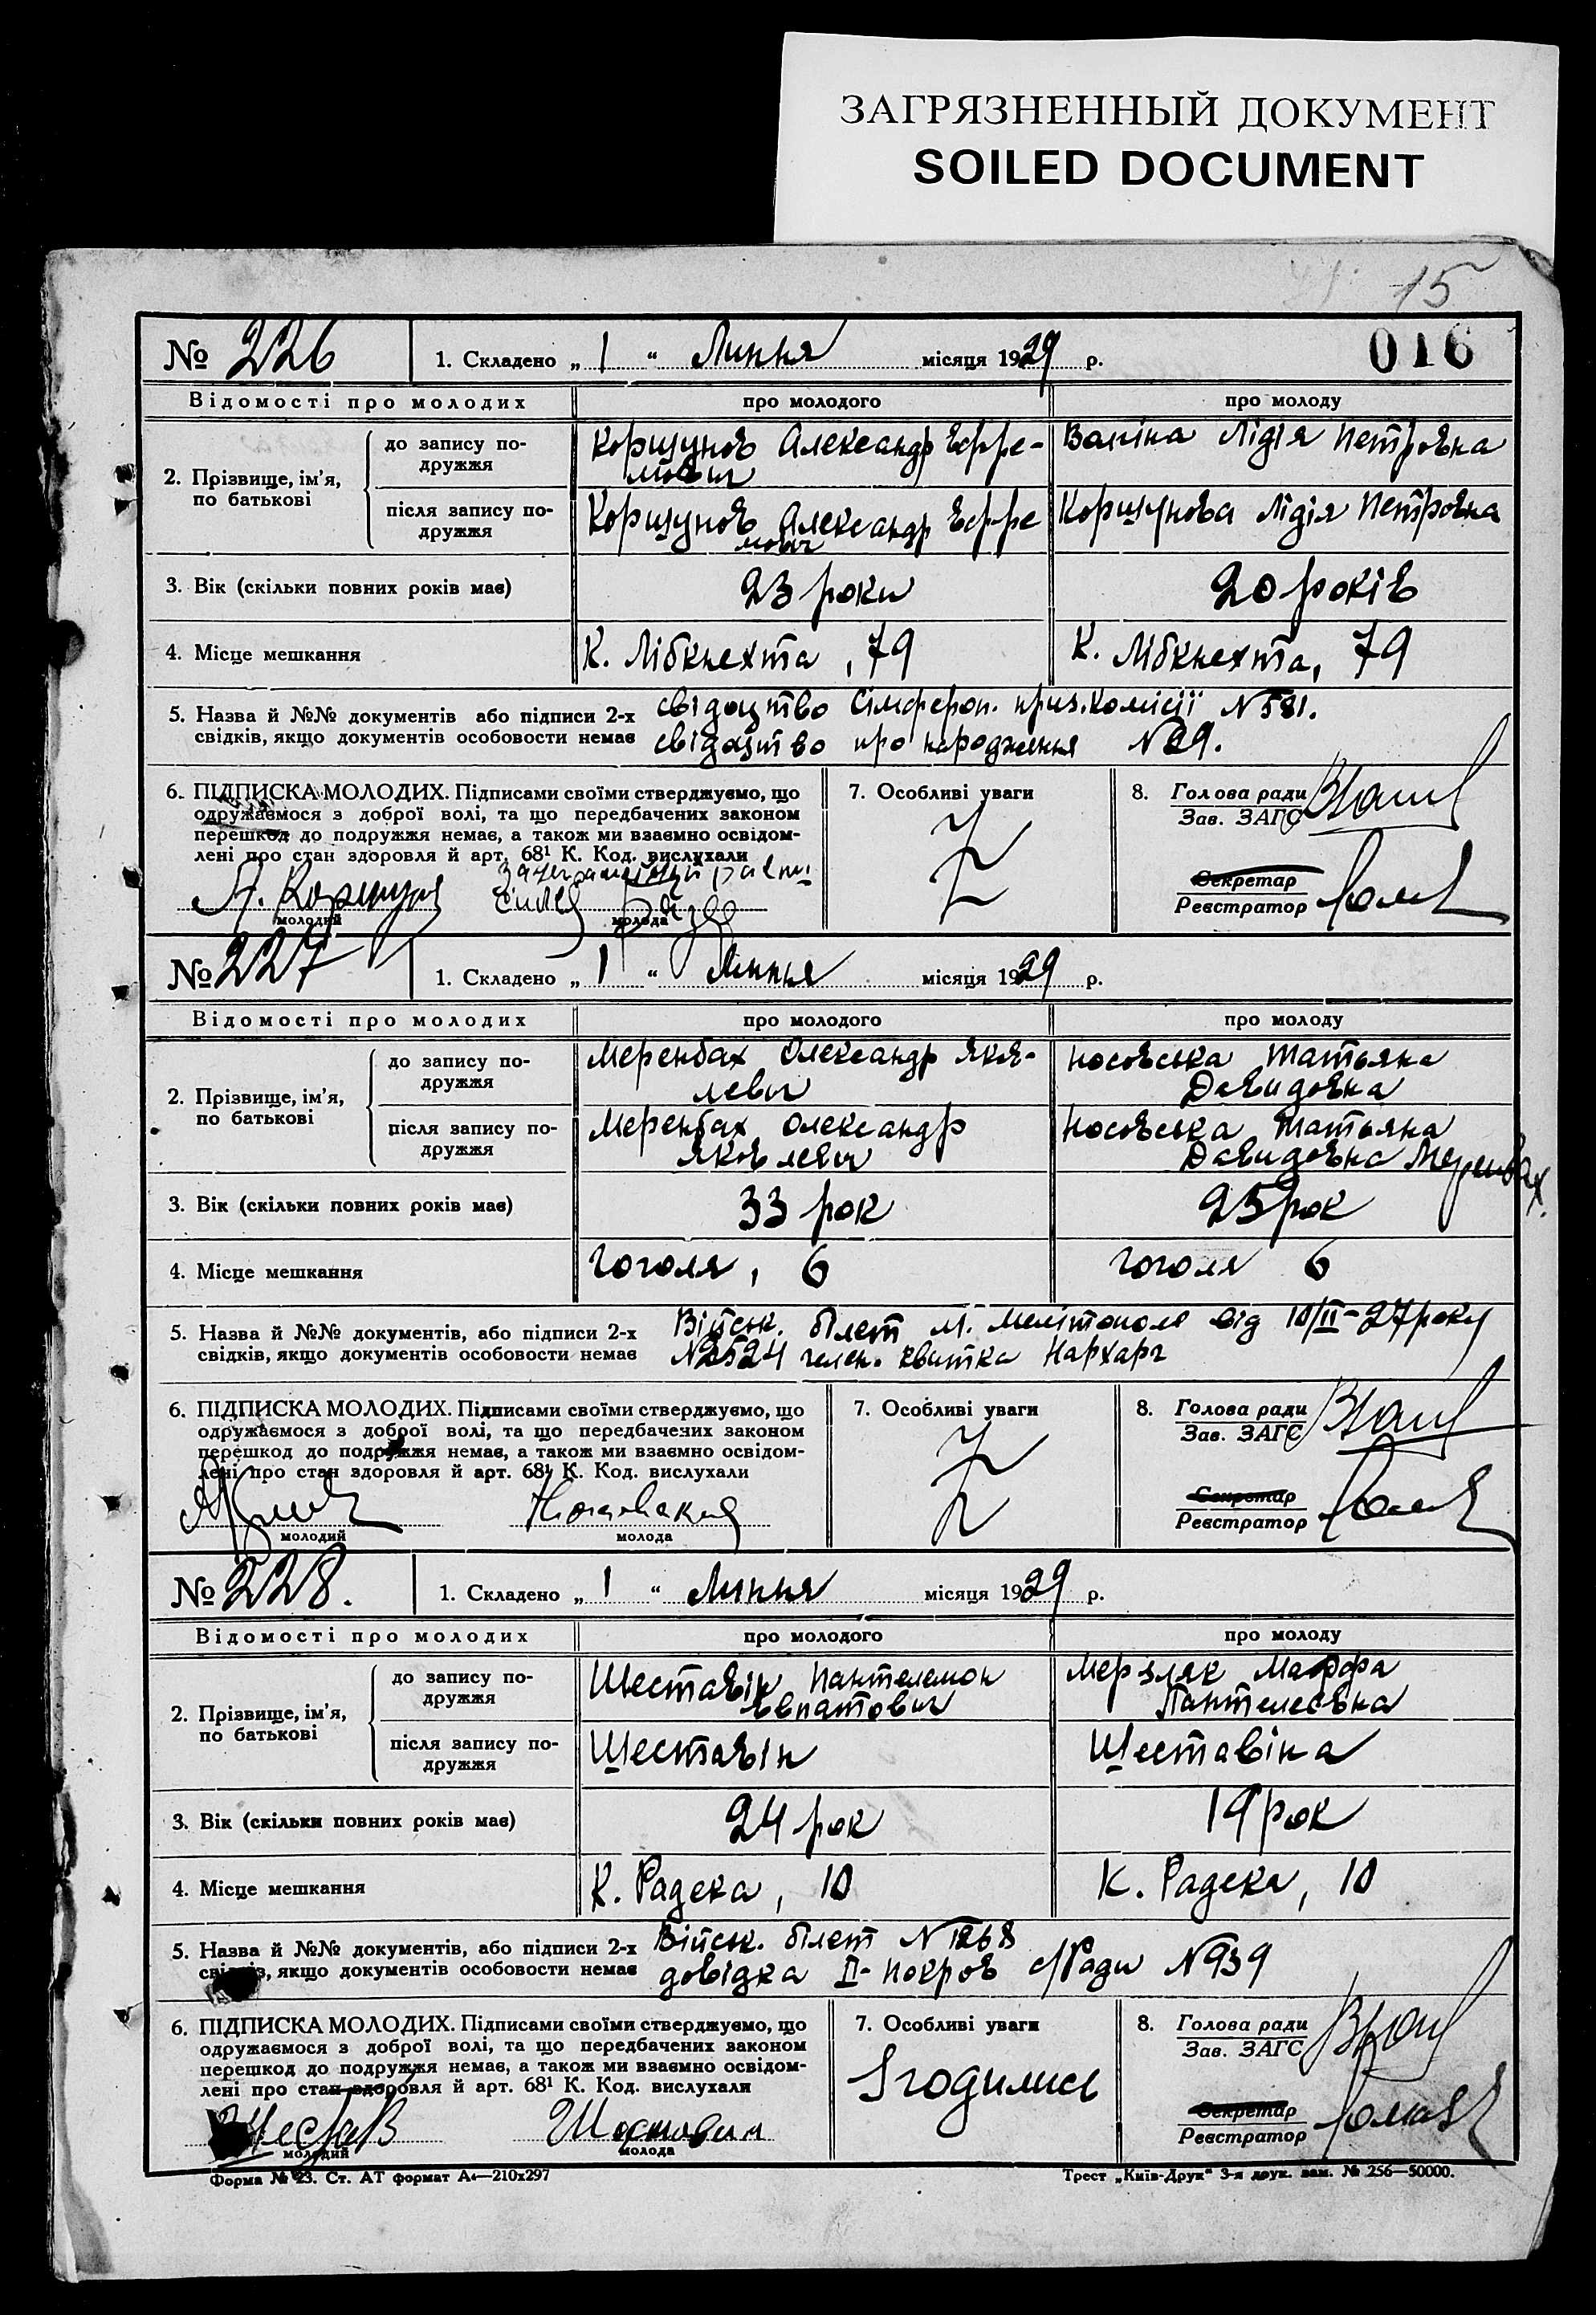 ЗАГРЯЗНЕННЫЙ ДОКУМЕНТ
SOILED DOCUMENT
15
016
№ 226 1. Складено „ 1 “ Липня місяця 1929 р.
Відомості про молодих про молодого про молоду
2. Прізвище, ім’я, по батькові
до запису подружжя
Коршунов Александр Ефре-
мович
Ваніна Лідія Петровна
після запису по-
дружжя
Коршунов Александр Ефре
мович
Коршунова Лідія Петровна
3. Вік (скільки повних років має) 23 роки 20 років
4. Місце мешкання К. Лібкнехта, 79 К. Лібкнехта, 79
5. Назва й №№ документів або підписи 2-х свідоцтво Сімфероп. приз. Комісії №581.
свідків, якщо документів особовости немає свідоцтво про народження №29.
6. ПІДПИСКА МОЛОДИХ. Підписами своїми стверджуємо, що
одружаємося з доброї волі, та що передбачених законом
перешкод до подружжя немає, а також ми взаємно освідом-
лені про стан здоровля й арт. 68¹ К. Код. вислухали
А. Коршунов
молодий молода
7. Особливі уваги
Z
8. Голова ради
Зав. ЗАГС
Секретар
Реєстратор
№ 227 1. Складено „ 1 “ Липня місяця 1929 р.
Відомості про молодих про молодого про молоду
2. Прізвище, ім’я,
по батькові
до запису по-
дружжя
Меренбах Олександр Яков-
левич
Носовська Татьяна
Давидовна
після запису по-
дружжя
Меренбах Олександр
Яковлевич
Носовська Татьяна
Давидовна Меренбах.
3. Вік (скільки повних років має) 33 рок 25 рок
4. Місце мешкання Гоголя, 6 Гоголя 6
5. Назва й №№ документів, або підписи 2-х Військ. білет м. Мелітополю від 10/II-27 року
свідків, якщо документів особовости немає №2524 член. квитка Нархарч
6. ПІДПИСКА МОЛОДИХ. Підписами своїми стверджуємо, що
одружаємося з доброї волі, та що передбачених законом
перешкод до подружжя немає, а також ми взаємно освідом-
лені про стан здоровля й арт. 68¹ К. Код. вислухали
Носовская
молодий молода
7. Особливі уваги
Z
8. Голова ради
Зав. ЗАГС
Секретар
Реєстратор
№ 228. 1. Складено „ 1 “ Липня місяця 1929 р.
Відомості про молодих про молодого про молоду
2. Прізвище, ім’я,
по батькові
до запису по-
дружжя
Шеставін Пантелемон
Евпатович
Мерзляк Марфа
Пантелеєвна
після запису по-
дружжя
Шеставін
Шеставіна
3. Вік (скільки повних років має) 24 рок 19 рок
4. Місце мешкання К. Радека, 10 К. Радека, 10
5. Назва й №№ документів, або підписи 2-х Військ. білет №1268
свідків, якщо документів особовости немає довідка II-Покров с/Ради №939
6. ПІДПИСКА МОЛОДИХ. Підписами своїми стверджуємо, що
одружаємося з доброї волі, та що передбачених законом
перешкод до подружжя немає, а також ми взаємно освідом-
лені про стан здоровля й арт. 68¹ К. Код. вислухали
Шестав
молодий молода
7. Особливі уваги
Згодились
8. Голова ради
Зав. ЗАГС
Секретар
Реєстратор
Форма № 23. Ст. АТ формат А₄—210x297 Трест „Київ-Друк“ 3-я друк. зам. № 256—50000.